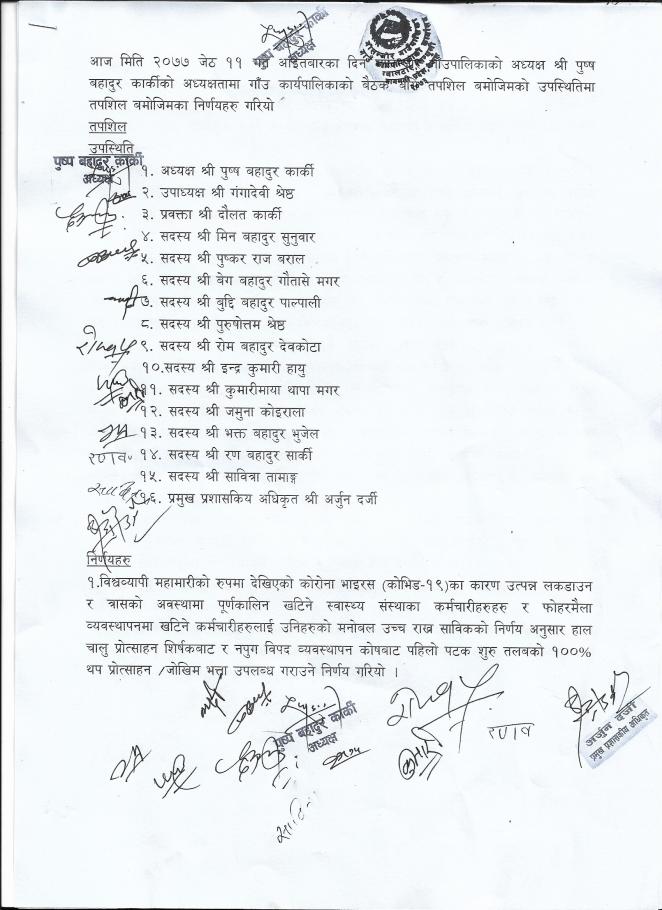 पुष्प बहादुर कार्की
अध्यक्ष
आज मिति २०७७ जेठ ११ गते आइतबारका दिन गाउपालिकाको अध्यक्ष श्री पुष्ष
बहादुर कार्कीको अध्यक्षतामा गाँउ कार्यपालिकाको बैठक तपशिल बमोजिमको उपस्थितिमा
तपशिल बमोजिमका निर्णयहरु गरियो
तपशिल
उपस्थिति
पुष्प बहादुर कार्की
अध्यक्ष
१. अध्यक्ष श्री पुष्ष बहादुर कार्की
२. उपाध्यक्ष श्री गंगादेवी श्रेष्ठ
३. प्रवक्ता श्री दौलत कार्की
४. सदस्य श्री मिन बहादुर सुनुवार
५. सदस्य श्री पुष्कर राज बराल
६. सदस्य श्री बेग बहादुर गौतासे मगर
७. सदस्य श्री बुद्दि बहादुर पाल्पाली
८. सदस्य श्री पुरुषोत्तम श्रेष्ठ
९. सदस्य श्री रोम बहादुर देवकोटा
१०.सदस्य श्री इन्द्र कुमारी हायु
११. सदस्य श्री कुमारीमाया थापा मगर
१२. सदस्य श्री जमुना कोइराला
१३. सदस्य श्री भक्त बहादुर भुजेल
रणव १४. सदस्य श्री रण बहादुर सार्की
१५. सदस्य श्री सावित्रा तामाङ्ग
१६. प्रमुख प्रशासकिय अधिकृत श्री अर्जुन दर्जी
निर्णयहरु
१.विश्वव्यापी महामारीको रुपमा देखिएको कोरोना भाइरस (कोभिड-१९)का कारण उत्पन्न लकडाउन
र त्रासको अवस्थामा पूर्णकालिन खटिने स्वास्थ्य संस्थाका कर्मचारीहरुहरु र फोहरमैला
व्यवस्थापनमा खटिने कर्मचारीहरुलाई उनिहरुको मनोवल उच्च राख्न साविकको निर्णय अनुसार हाल
चालु प्रोत्साहन शिर्षकबाट र नपुग विपद व्यवस्थापन कोषबाट पहिलो पटक शुरु तलबको १००%
थप प्रोत्साहन /जोखिम भत्ता उपलब्ध गराउने निर्णय गरियो ।
पुष्प बहादुर कार्की
अध्यक्ष
रणव
अर्जुन दर्जी
प्रमुख प्रशासकीय अधिकृत